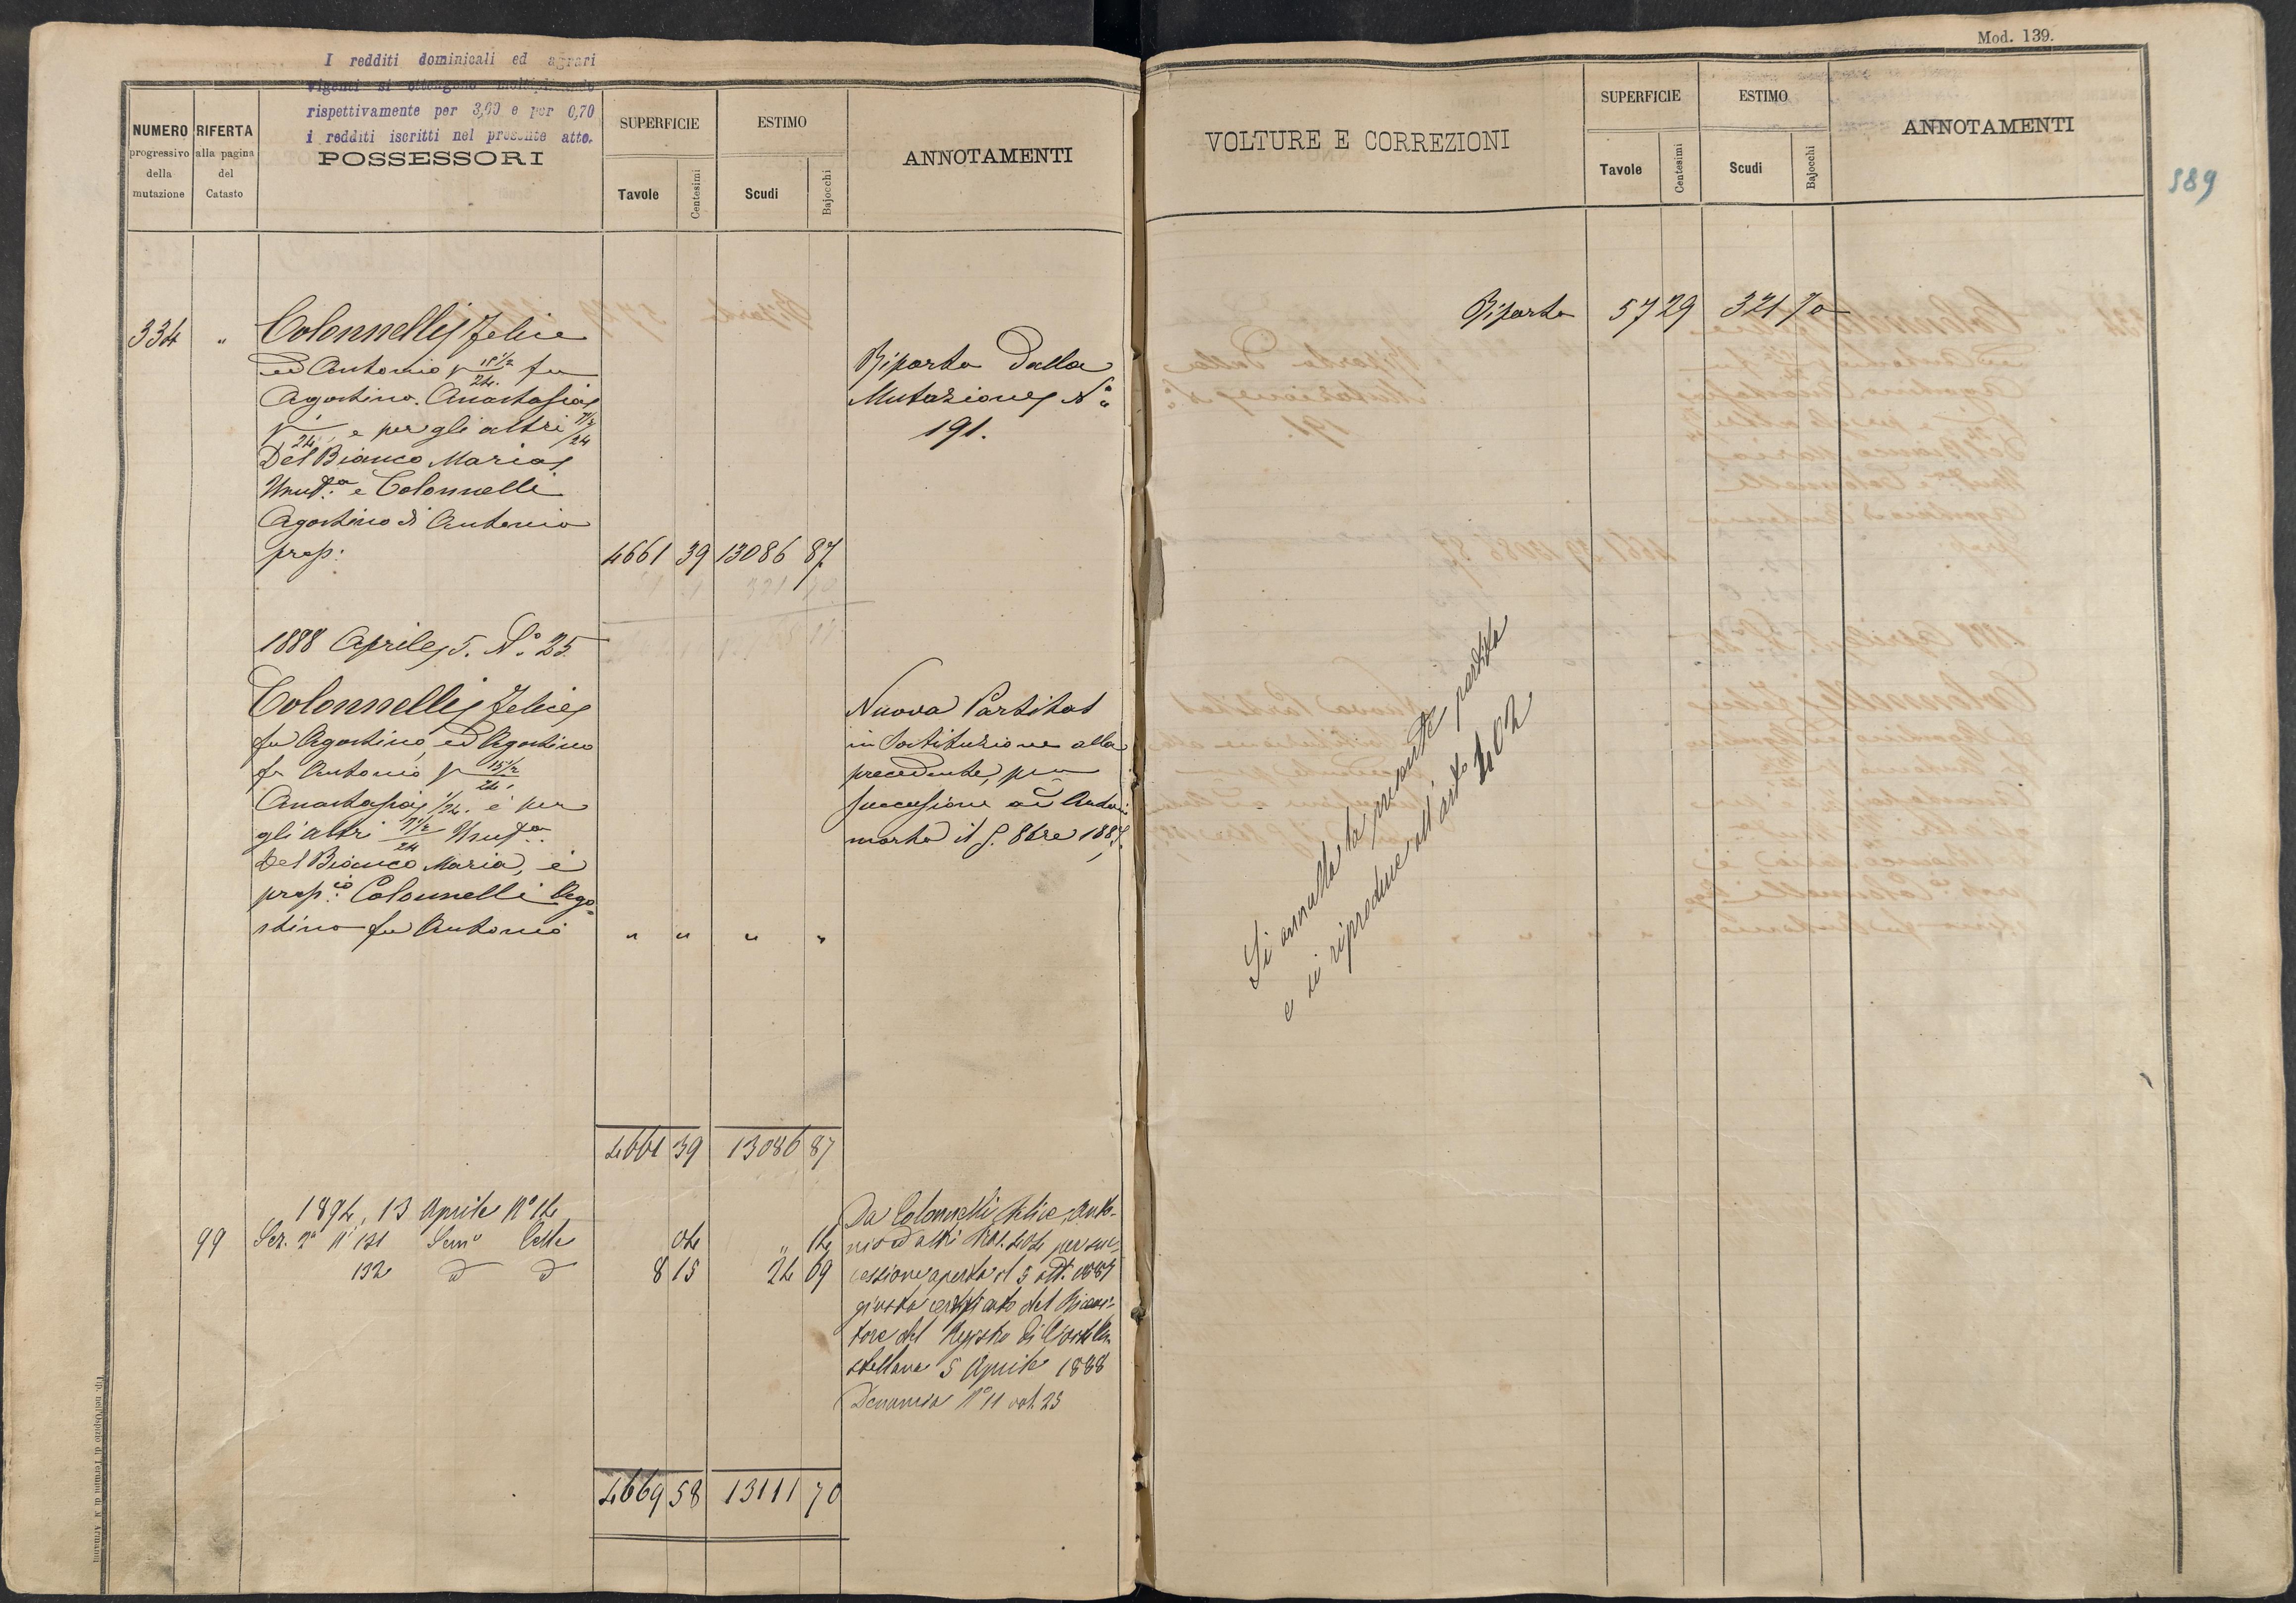 I redditi dominicali ed agrari
vigenti si ottengono moltiplicando
rispettivamente per 3,60 e per 0,70
i redditi iscritti nel presente atto.
NUMERO progressivo della mutazione
RIFERTA alla pagina del Catasto
POSSESSORI
SUPERFICIE
Tavole
Centesimi
ESTIMO
Scudi
Bajocchi
ANNOTAMENTI
334 " Colonnelli Felice
ed Antonio p 15 1/2/24 fu
Agostino. Anastasia
p 1/24, e per gli altri 7 1/2/24
Del Bianco Maria
Usufa. e Colonnelli
Agostino di Antonio
prop: 4661 39 13086 87
Riporto dalla
Mutazione N°
191.
1888 Aprile 5. N° 25
Colonnelli Felice
fu Agostino, ed Agostino
fu Antonio p 15 1/2/24.
Anastasia 1/24. e per
gli altri 7 1/2/24 Usufa.
Del Bianco Maria, e
propio. Colonnelli Ago=
stino fu Antonio " " " "
Nuova Partita
in sostituzione alla
precedente, per
successione ad Antoni
morto il 5. 8bre 1887.
4661 39 13086 87
1894, 13 Aprile N° 14
99 Sez. 2a N 131 Semo Colle 04 " 14
132 d d 8 15 24 69
Da Colonnelli Felice, Anto-
nio ed altri per suc-
cessione aperta il 5 ott. 1887
giusta certificato del Ricevi-
tore del Registro di Civita Ca-
stellana 5 Aprile 1888
Denuncia N° 11 vol. 23
4669 58 13111 70
Tip. nell'Ospizio di Termini di N. Armanni
Mod. 139.
VOLTURE E CORREZIONI
SUPERFICIE
Tavole
Centesimi
ESTIMO
Scudi
Bajocchi
ANNOTAMENTI
589
Riporto 57 29 321 70
Si annulla la presente partita
e si riproduce all'arto 402